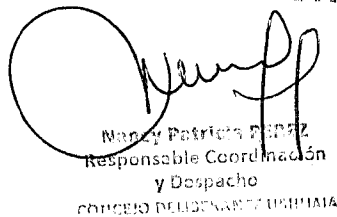 Nancy Patricia PEREZ
Responsable Coordinación
y Despacho
CONCEJO DELIBERANTE USHUAIA